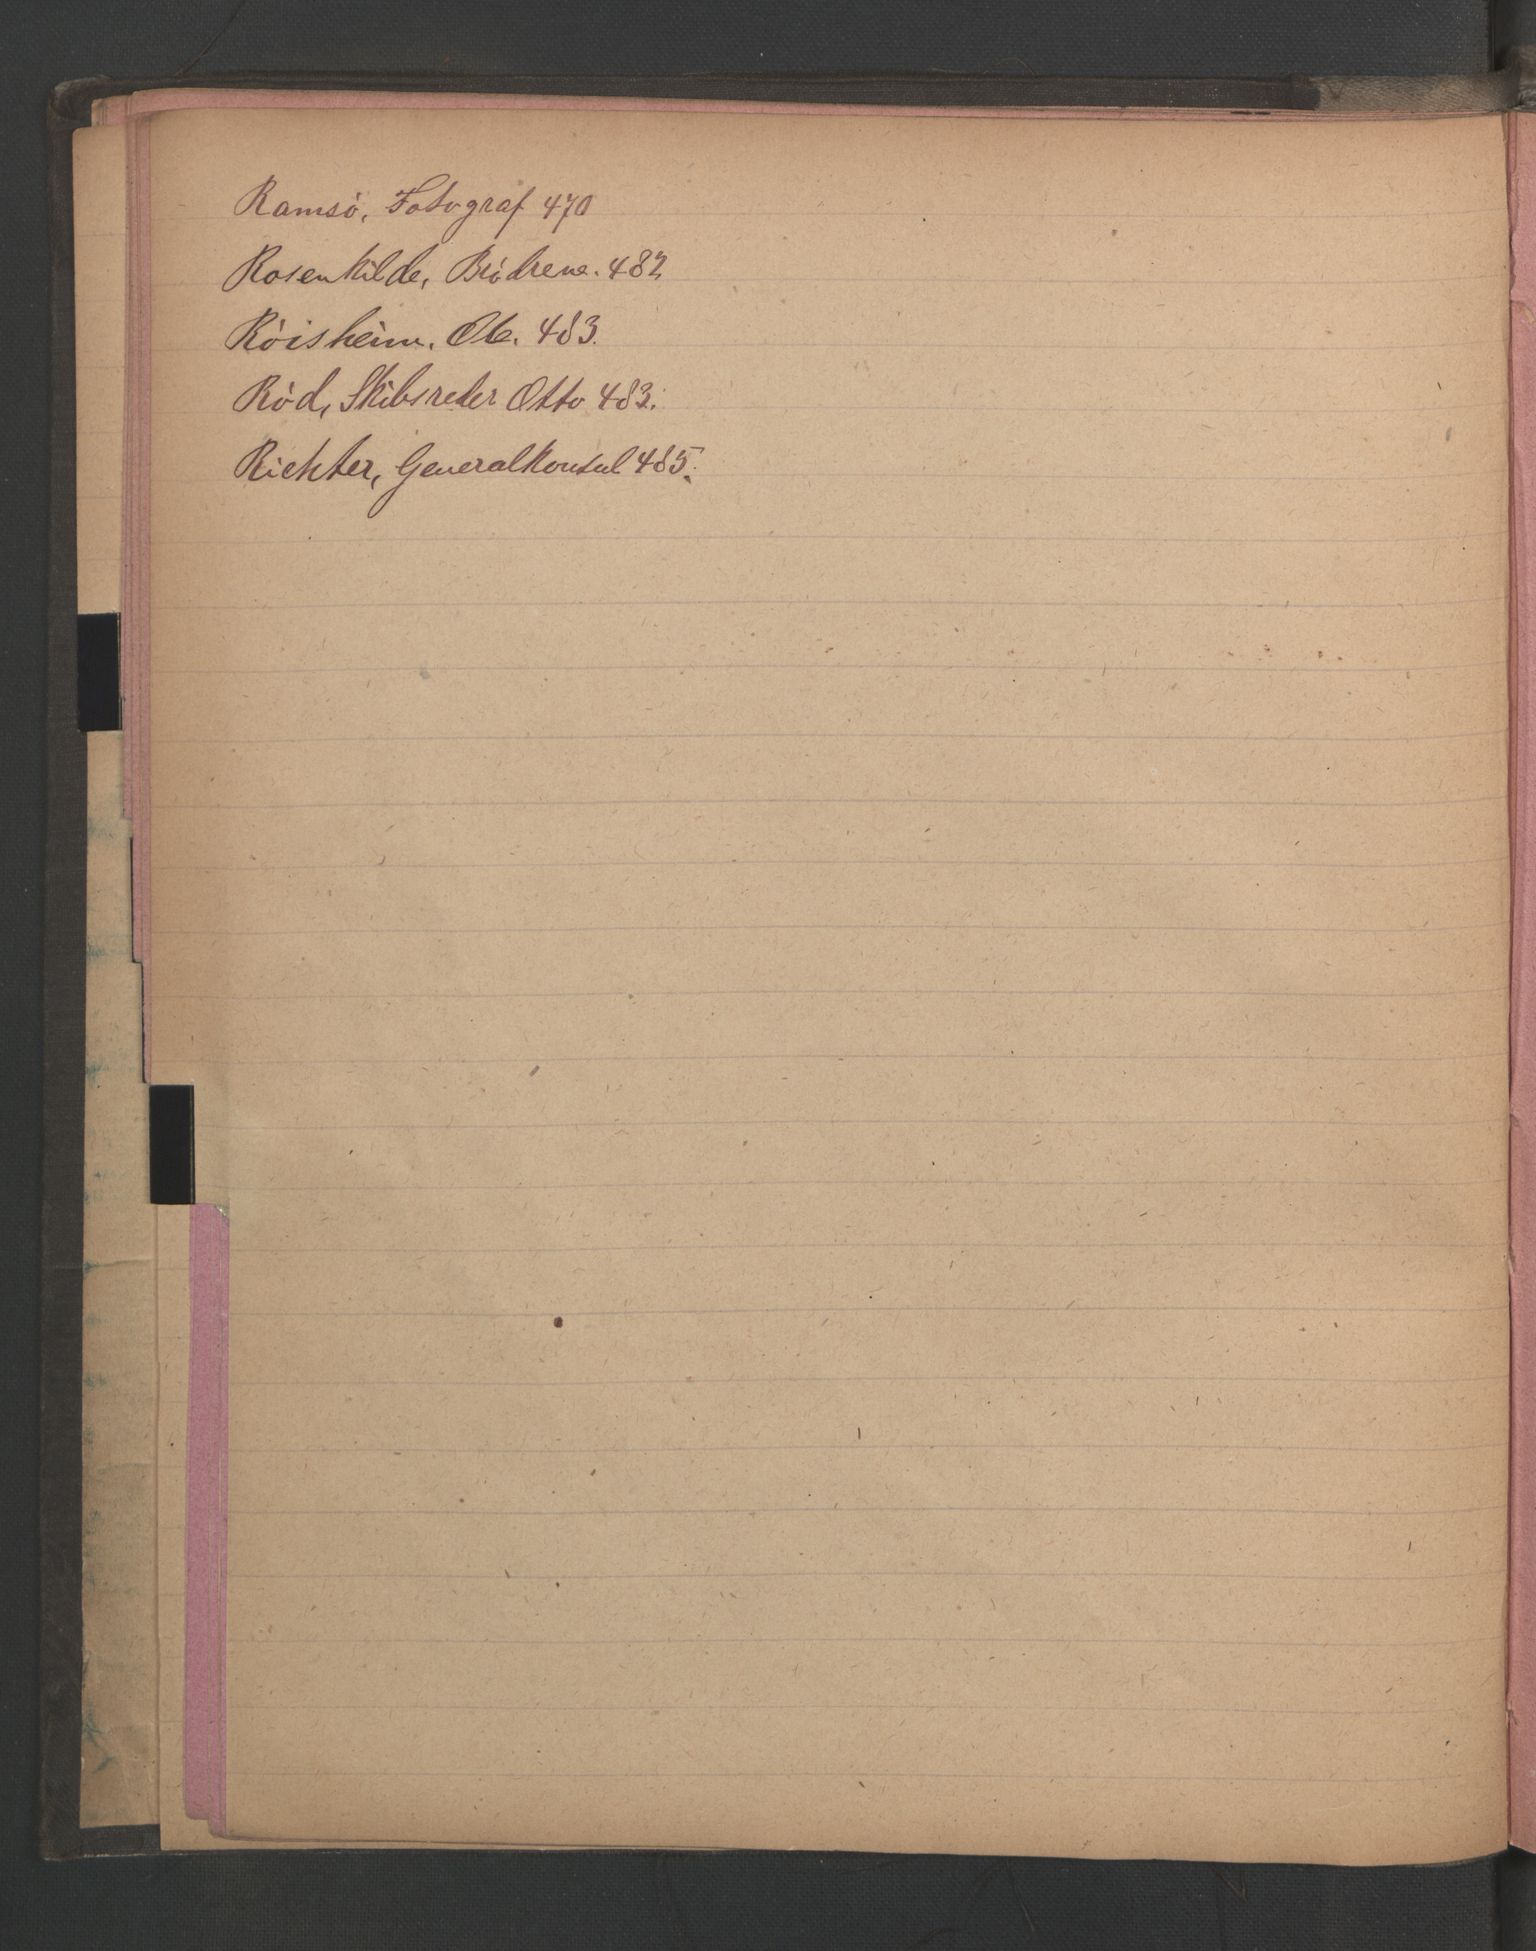 Ramsö, Fotograf 470
Rosenkilde, Brödrene. 482
Röisheim. Ole. 483.
Röd, Skibsreder Otto 483.
Richter, Generalkonsul 485.